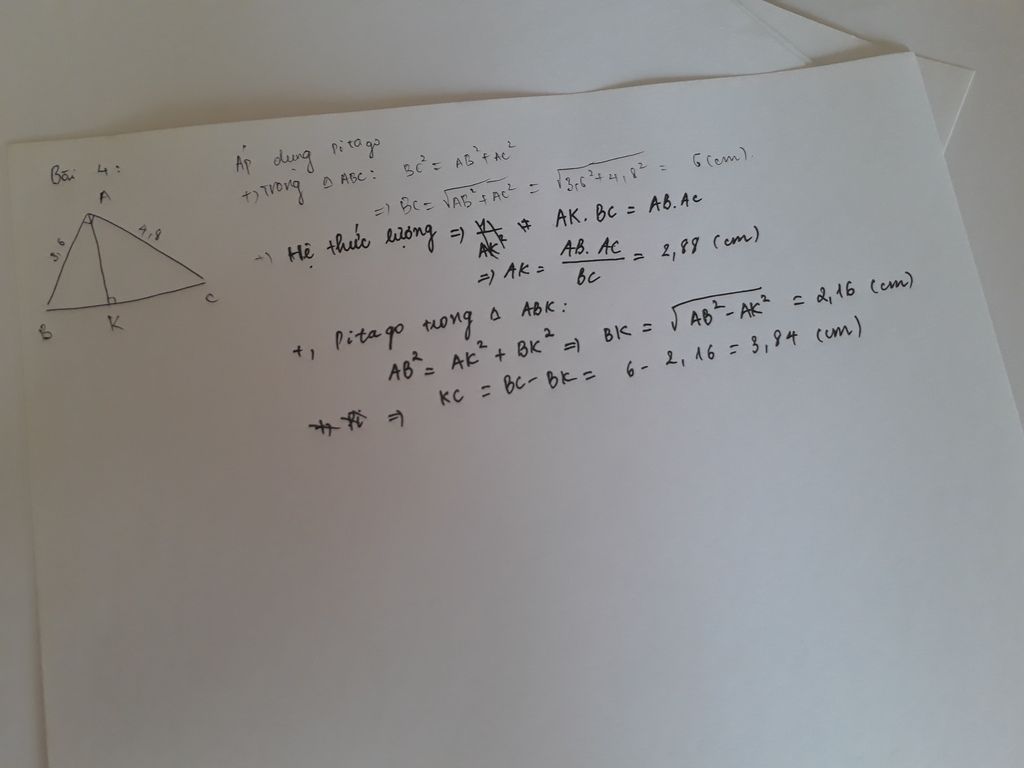 Bài 4:
A
3,6
4,8
B
K
C
Áp dụng pitago
+, Trong Δ ABC: BC² = AB² + AC²
=> BC = √AB² + AC² = √3,6² + 4,8² = 6 (cm).
+, Hệ thức lượng => AK. BC = AB. AC
=> AK = AB. AC / BC = 2,88 (cm)
+, Pitago trong Δ ABK:
AB² = AK² + BK² => BK = √AB² - AK² = 2,16 (cm)
=> KC = BC - BK = 6 - 2,16 = 3,84 (cm)